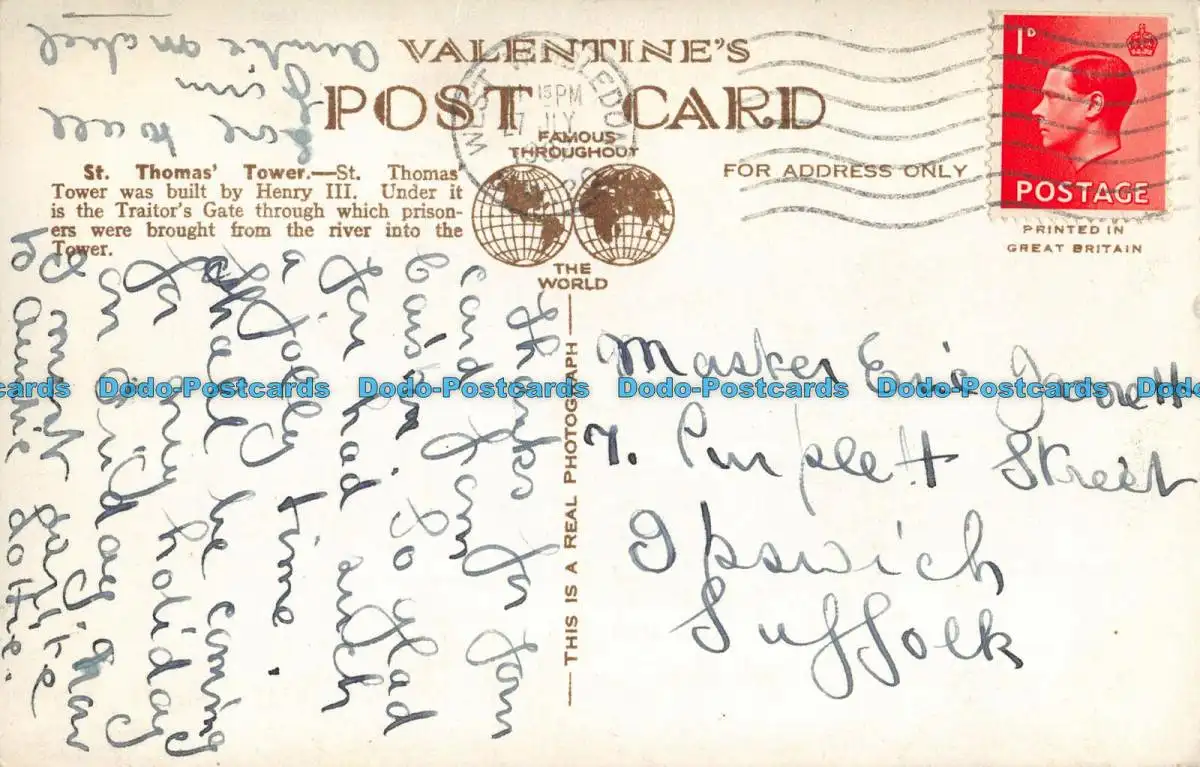 VALENTINE'S
POST CARD
FAMOUS
THROUGHOUT
THE
WORLD
FOR ADDRESS ONLY
1D
POSTAGE
PRINTED IN
GREAT BRITAIN
15 PM
JLY
St. Thomas' Tower.—St. Thomas'
Tower was built by Henry III. Under it
is the Traitor's Gate through which prison-
ers were brought from the river into the
Tower.
THIS IS A REAL PHOTOGRAPH
Thanks for your
card from
. So glad
you had such
a jolly time.
Shall be coming
for my holiday
on
I must
to auntie Dottie.
love to all
from
auntie mabel
Master Eric Jarrett
7. Purplett Street
Ipswich
Suffolk
Dodo-Postcards Dodo-Postcards Dodo-Postcards Dodo-Postcards Dodo-Postcards